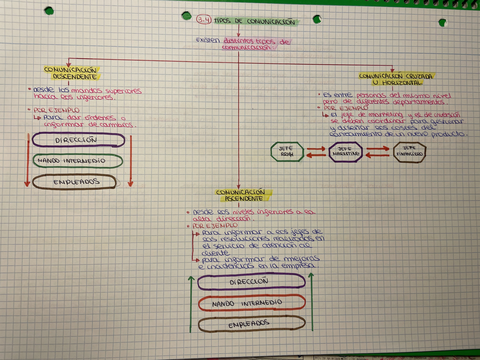 3.4 TIPOS DE COMUNICACIÓN
Existen distintos tipos de
comunicación
COMUNICACIÓN
DESCENDENTE
• Desde los mandos superiores
hacia los inferiores.
• POR EJEMPLO
Para dar órdenes o
informar de cambios.
DIRECCIÓN
MANDO INTERMEDIO
EMPLEADOS
COMUNICACIÓN CRUZADA
U HORIZONTAL
• Es entre personas del mismo nivel
pero de diferentes departamentos.
• POR EJEMPLO
El jefe de marketing y el de
se deben coordinar para gestionar
y los costes del
lanzamiento de un nuevo producto.
JEFE
JEFE
MARKETING
JEFE
FINANCIERO
COMUNICACIÓN
ASCENDENTE
• Desde los niveles inferiores a la
alta dirección.
• POR EJEMPLO
Para informar a los jefes de
las resoluciones realizadas en
el servicio de atención al
cliente
Para informar de mejoras
e incidencias en la empresa
DIRECCIÓN
MANDO INTERMEDIO
EMPLEADOS